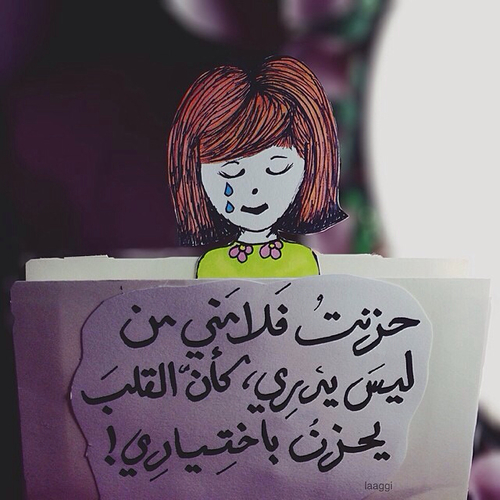 حزنتُ فَلامَني من
ليسَ يدري، كأنَّ القلبَ
يحزنُ باختِياري!
laaggi